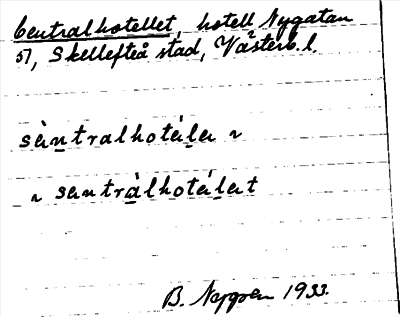 Centralhotellet, hotell Nygatan
57, Skellefteå stad, Västerb. l.
sàntralhotálɛ ~
~ santràlhotálɛt
B. Nygren 1933.